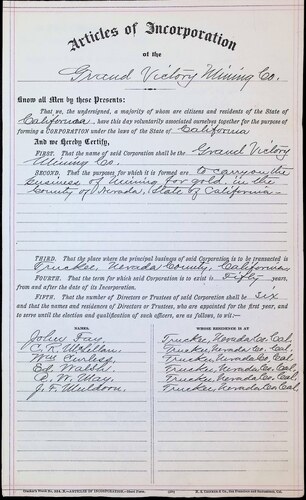 Articles of Incorporation
of the
Grand Victory Mining Co.
Know all Men by these Presents:
That we, the undersigned, a majority of whom are citizens and residents of the State of
California, have this day voluntarily associated ourselves together for the purpose of
forming a CORPORATION under the laws of the State of California
And we Hereby Certify,
FIRST. That the name of said Corporation shall be the Grand Victory
Mining Co.
SECOND. That the purpose for which it is formed are to carry on the
business of Mining for gold, in the
County of Nevada, State of California
THIRD. That the place where the principal business of said Corporation is to be transacted is
Truckee, Nevada County, California
FOURTH. That the term for which said Corporation is to exist is Fifty years,
from and after the date of its Incorporation.
FIFTH. That the number of Directors or Trustees of said Corporation shall be six
and that the names and residences of Directors or Trustees, who are appointed for the first year, and
to serve until the election and qualification of such officers, are as follows, to wit:
NAMES. WHOSE RESIDENCE IS AT
John Fay, Truckee, Nevada Co. Cal.
C. R. McLellan Truckee, Nevada Co. Cal.
Wm Curless Truckee, Nevada Co. Cal.
Ed Walsh Truckee, Nevada Co. Cal.
B. W. May. Truckee, Nevada Co. Cal.
J. F. Muldoon. Truckee, Nevada Co. Cal
ARTICLES OF INCORPORATION